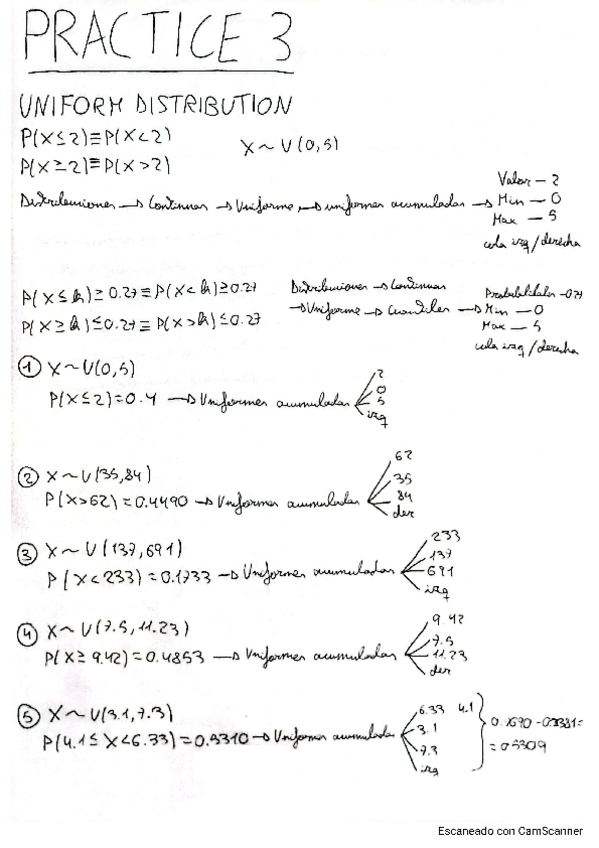 PRACTICE 3
UNIFORM DISTRIBUTION
P(X≤2)≡P(X<2)
X~U(0,5)
P(X≥2)≡P(X>2)
Distribuciones → Continuas → Uniforme → uniformes acumuladas →
Valor - 2
Min - 0
Max - 5
cola izq/derecha
P(X≤k)≥0.27≡P(X<k)≥0.27
P(X≥k)≤0.27≡P(X>k)≤0.27
Distribuciones → Continuas
→ Uniforme → Cuantiles →
Probabilidades - 0.27
Min - 0
Max - 5
cola izq/derecha
① X~U(0,5)
P(X≤2)=0.4 → Uniformes acumuladas
2
0
5
izq
② X~U(35,84)
P(X>62)=0.4490 → Uniformes acumuladas
62
35
84
der
③ X~U(137,691)
P(X<233)=0.1733 → Uniformes acumuladas
233
137
691
izq
④ X~U(7.5,11.23)
P(X≥9.42)=0.4853 → Uniformes acumuladas
9.42
7.5
11.23
der
⑤ X~U(3.1,7.3)
P(4.1≤X<6.33)=0.5310 → Uniformes acumuladas
6.33 4.1
3.1
7.3
izq
0.7690-0.2381=
=0.5309
Escaneado con CamScanner